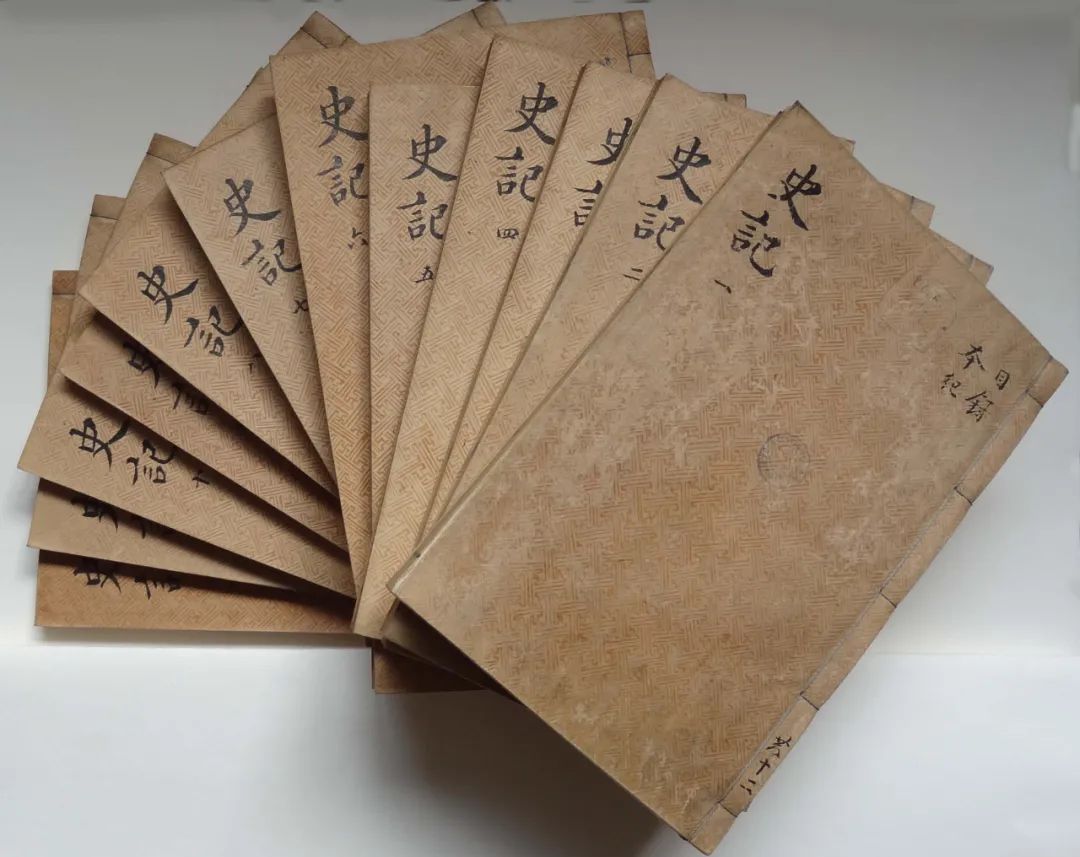 史記 一
目錄
本紀
共十二
史記 二
史記
史記 四
史記 五
史記 六
史記 七
史記 八
史記
史記 十
史記
史記